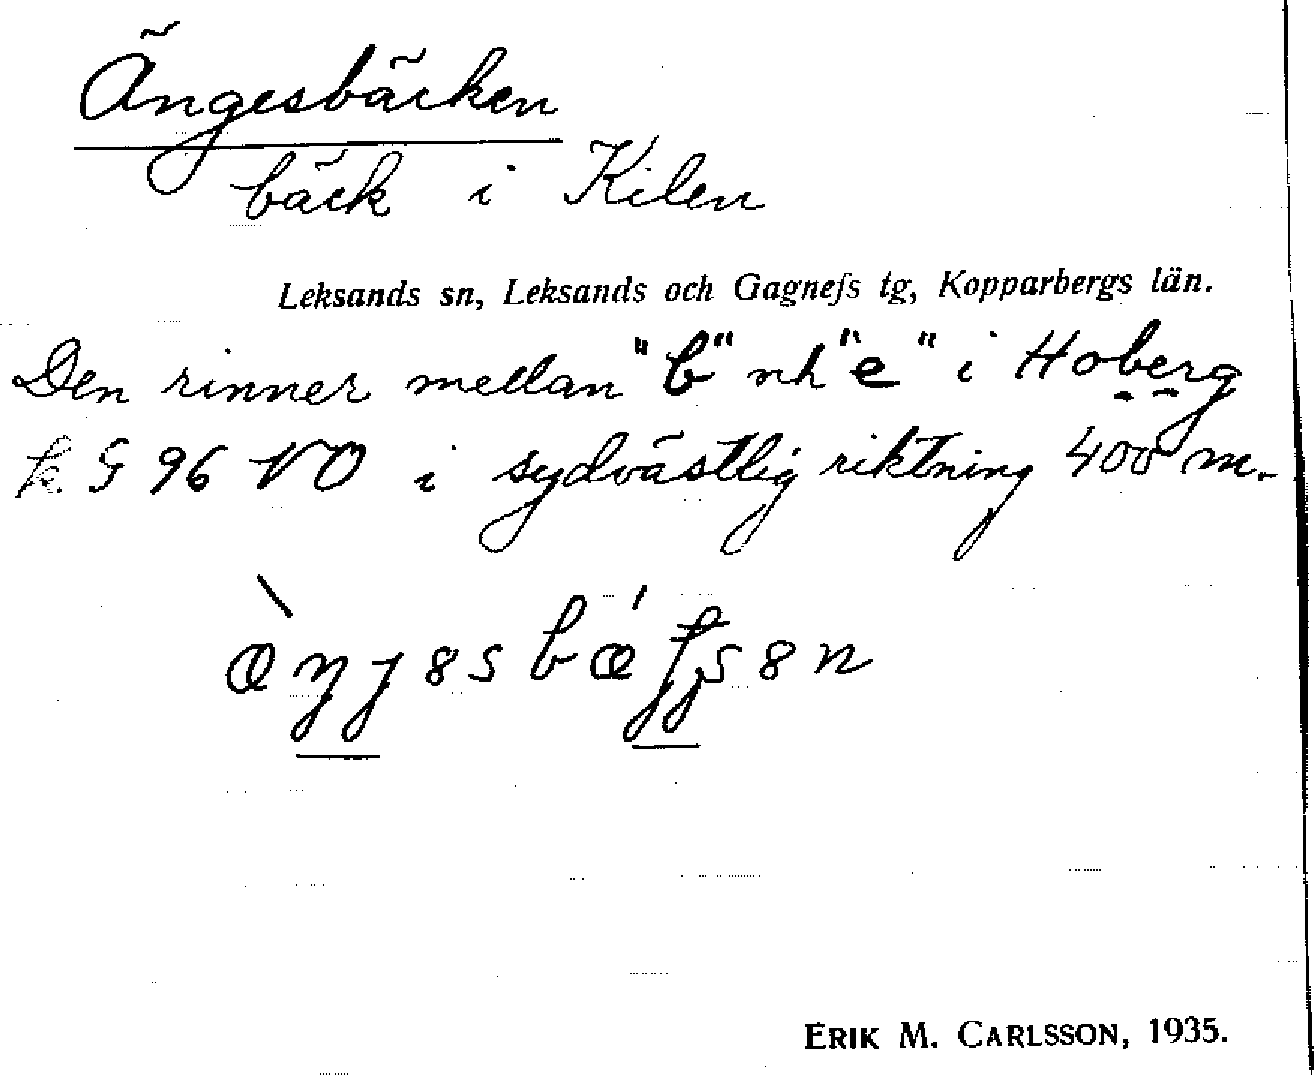 Ängesbäcken
bäck i Kilen
Leksands sn, Leksands och Gagnefs tg, Kopparbergs län.
Den rinner mellan "b" nh "e" i Hoberg
k. G 96 NO i sydvästlig riktning 400 m.
ERIK M. CARLSSON, 1935.